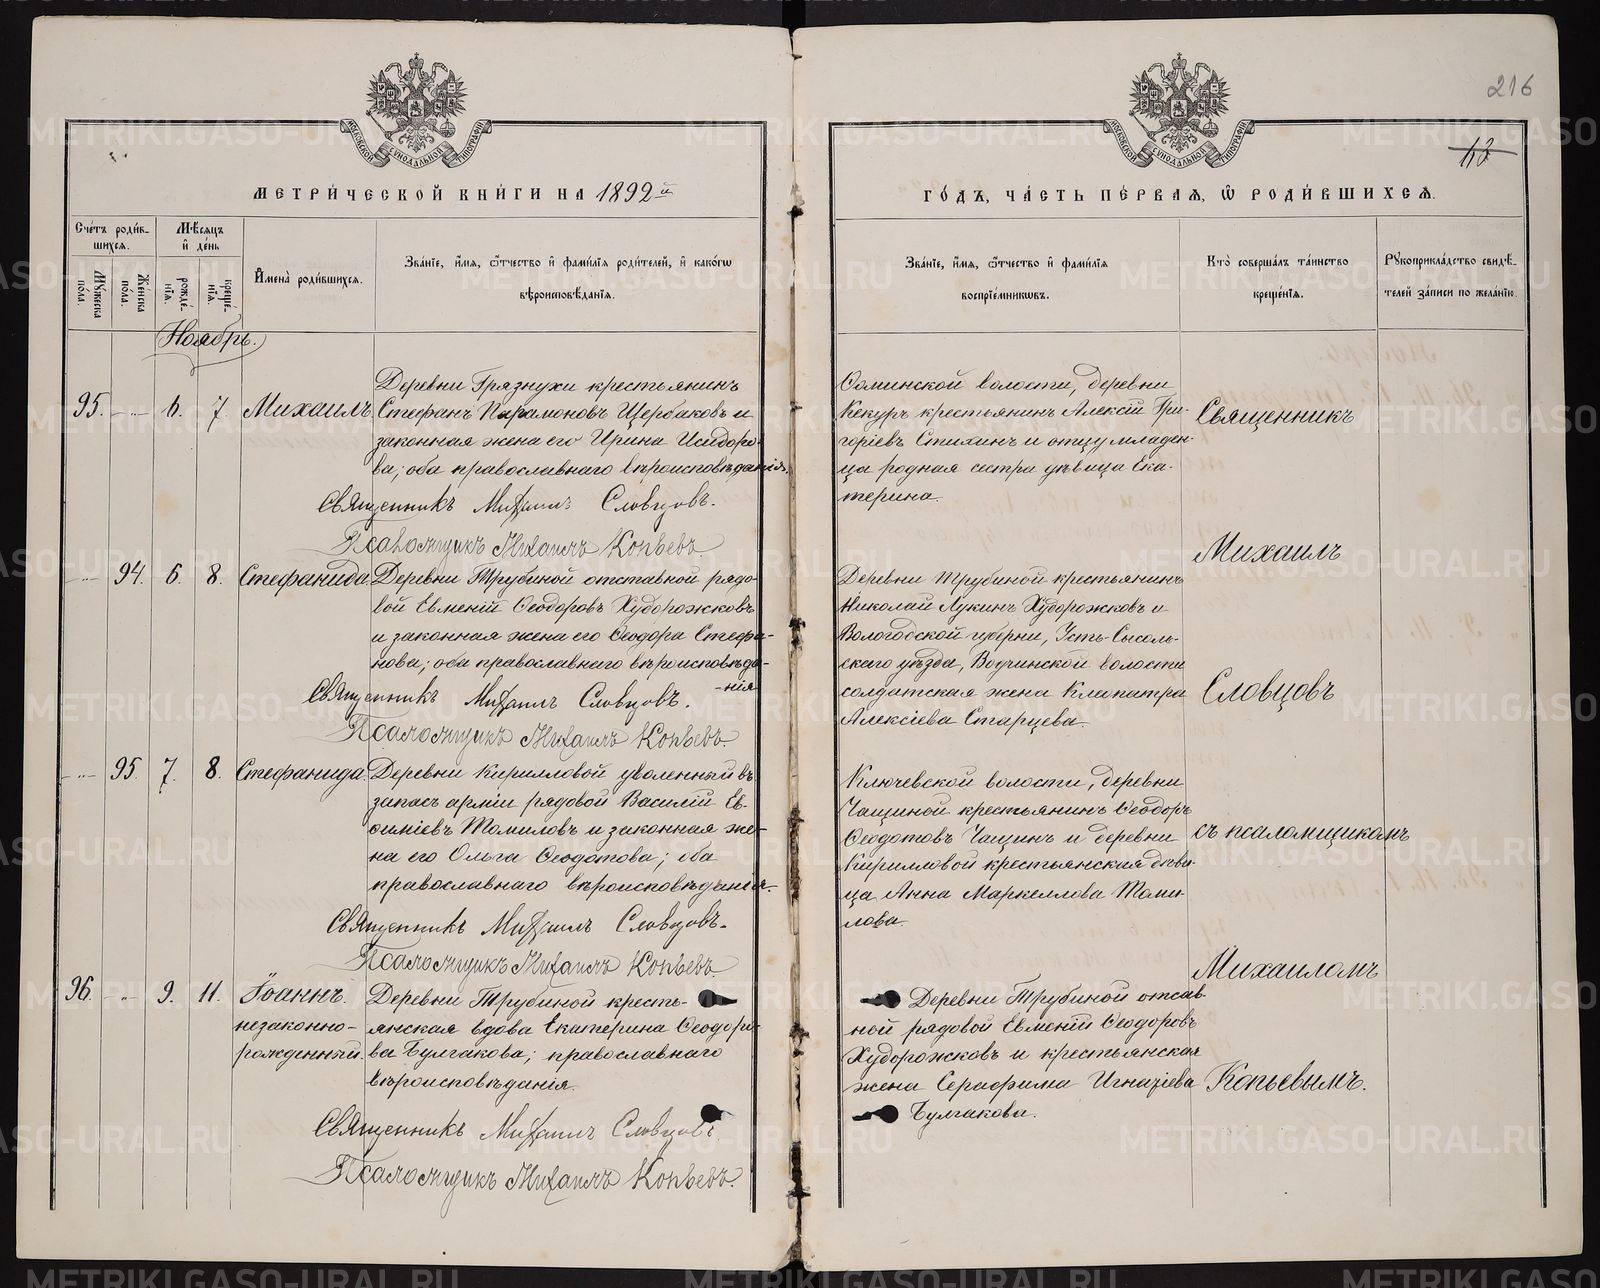 216
13
МЕТРИ́ЧЕСКОЙ КНИ́ГИ НА 1892й
ГО́ДЪ, ЧА́СТЬ ПЕ́РВАЯ, Ѡ РОДИ́ВШИХСЯ.
Сче́тъ роди́в-
шихся.
Мꙋ́жеска по́ла.
Же́нска по́ла.
Мѣ́сяцъ
и҆ де́нь
рожде́-
нїя.
креще́-
нїя.
И҆мена̀ роди́вшихся.
Зва́нїе, и҆́мя, ѻ҆́тчество и҆ фами́лїя роди́телей, и҆ како́гѡ
вѣроисповѣ́данїя.
Зва́нїе, и҆́мя, ѻ҆́тчество и҆ фами́лїя
воспрїе́мникѡвъ.
Кто̀ соверша́лъ та́инство
креще́нїя.
Рꙋкоприкла́дство свидѣ́-
телей за́писи по жела́нїю.
Ноябрь.
95. - „ - 6. 7. Михаилъ
Деревни Грязнухи крестьянинъ
Стефанъ Парамоновъ Щербаковъ и
законная жена его Ирина Исидоро-
ва; оба православнаго вѣроисповѣданія.
Священникъ Михаилъ Словцовъ.
Псаломщикъ Михаилъ Копьевъ.
деревни
Кекуръ крестьянинъ Алексій Гри-
горіевъ Стихинъ и отцу младен-
ца родная сестра дѣвица Ека-
терина.
- „ - 94. 6. 8. Стефанида
Деревни Трубиной отставной рядо-
вой Евменій Ѳеодоровъ Худорожковъ
и законная жена его Ѳеодора Стефа-
нова; оба православнаго вѣроисповѣда-
-нія
Священникъ Михаилъ Словцовъ.
Псаломщикъ Михаилъ Копьевъ.
Деревни Трубиной крестьянинъ
Николай Лукинъ Худорожковъ и
Вологодской губерніи, Усть-Сысоль-
скаго уѣзда, Вотчинской волости
солдатская жена Клипатра
Алексіева Старцева.
- „ - 95. 7. 8. Стефанида.
Деревни Кирилловой уволенный въ
запасъ арміи рядовой Василій Ев-
ѳиміевъ Томиловъ и законная же-
на его Ольга Ѳеодотова; оба
православнаго вѣроисповѣданія.
Священникъ Михаилъ Словцовъ.
Псаломщикъ Михаилъ Копьевъ.
Ключевской волости, деревни
Чащиной крестьянинъ Ѳеодоръ
Ѳеодотовъ Чащинъ и деревни
Кирилловой крестьянская дѣви-
ца Анна Маркеллова Томи-
лова.
96. - „ - 9. 11. Іоаннъ.
незаконно-
рожденный.
Деревни Трубиной кресть-
янская вдова Екатерина Ѳеодоро-
ва Булгакова; православнаго
вѣроисповѣданія.
Священникъ Михаилъ Словцовъ.
Псаломщикъ Михаилъ Копьевъ.
Деревни Трубиной отстав-
ной рядовой Евменій Ѳеодоровъ
Худорожковъ и крестьянская
жена Серафима Игнатіева
Булгакова.
Священникъ
Михаилъ
Словцовъ
съ псаломщикомъ
Михаиломъ
Копьевымъ.